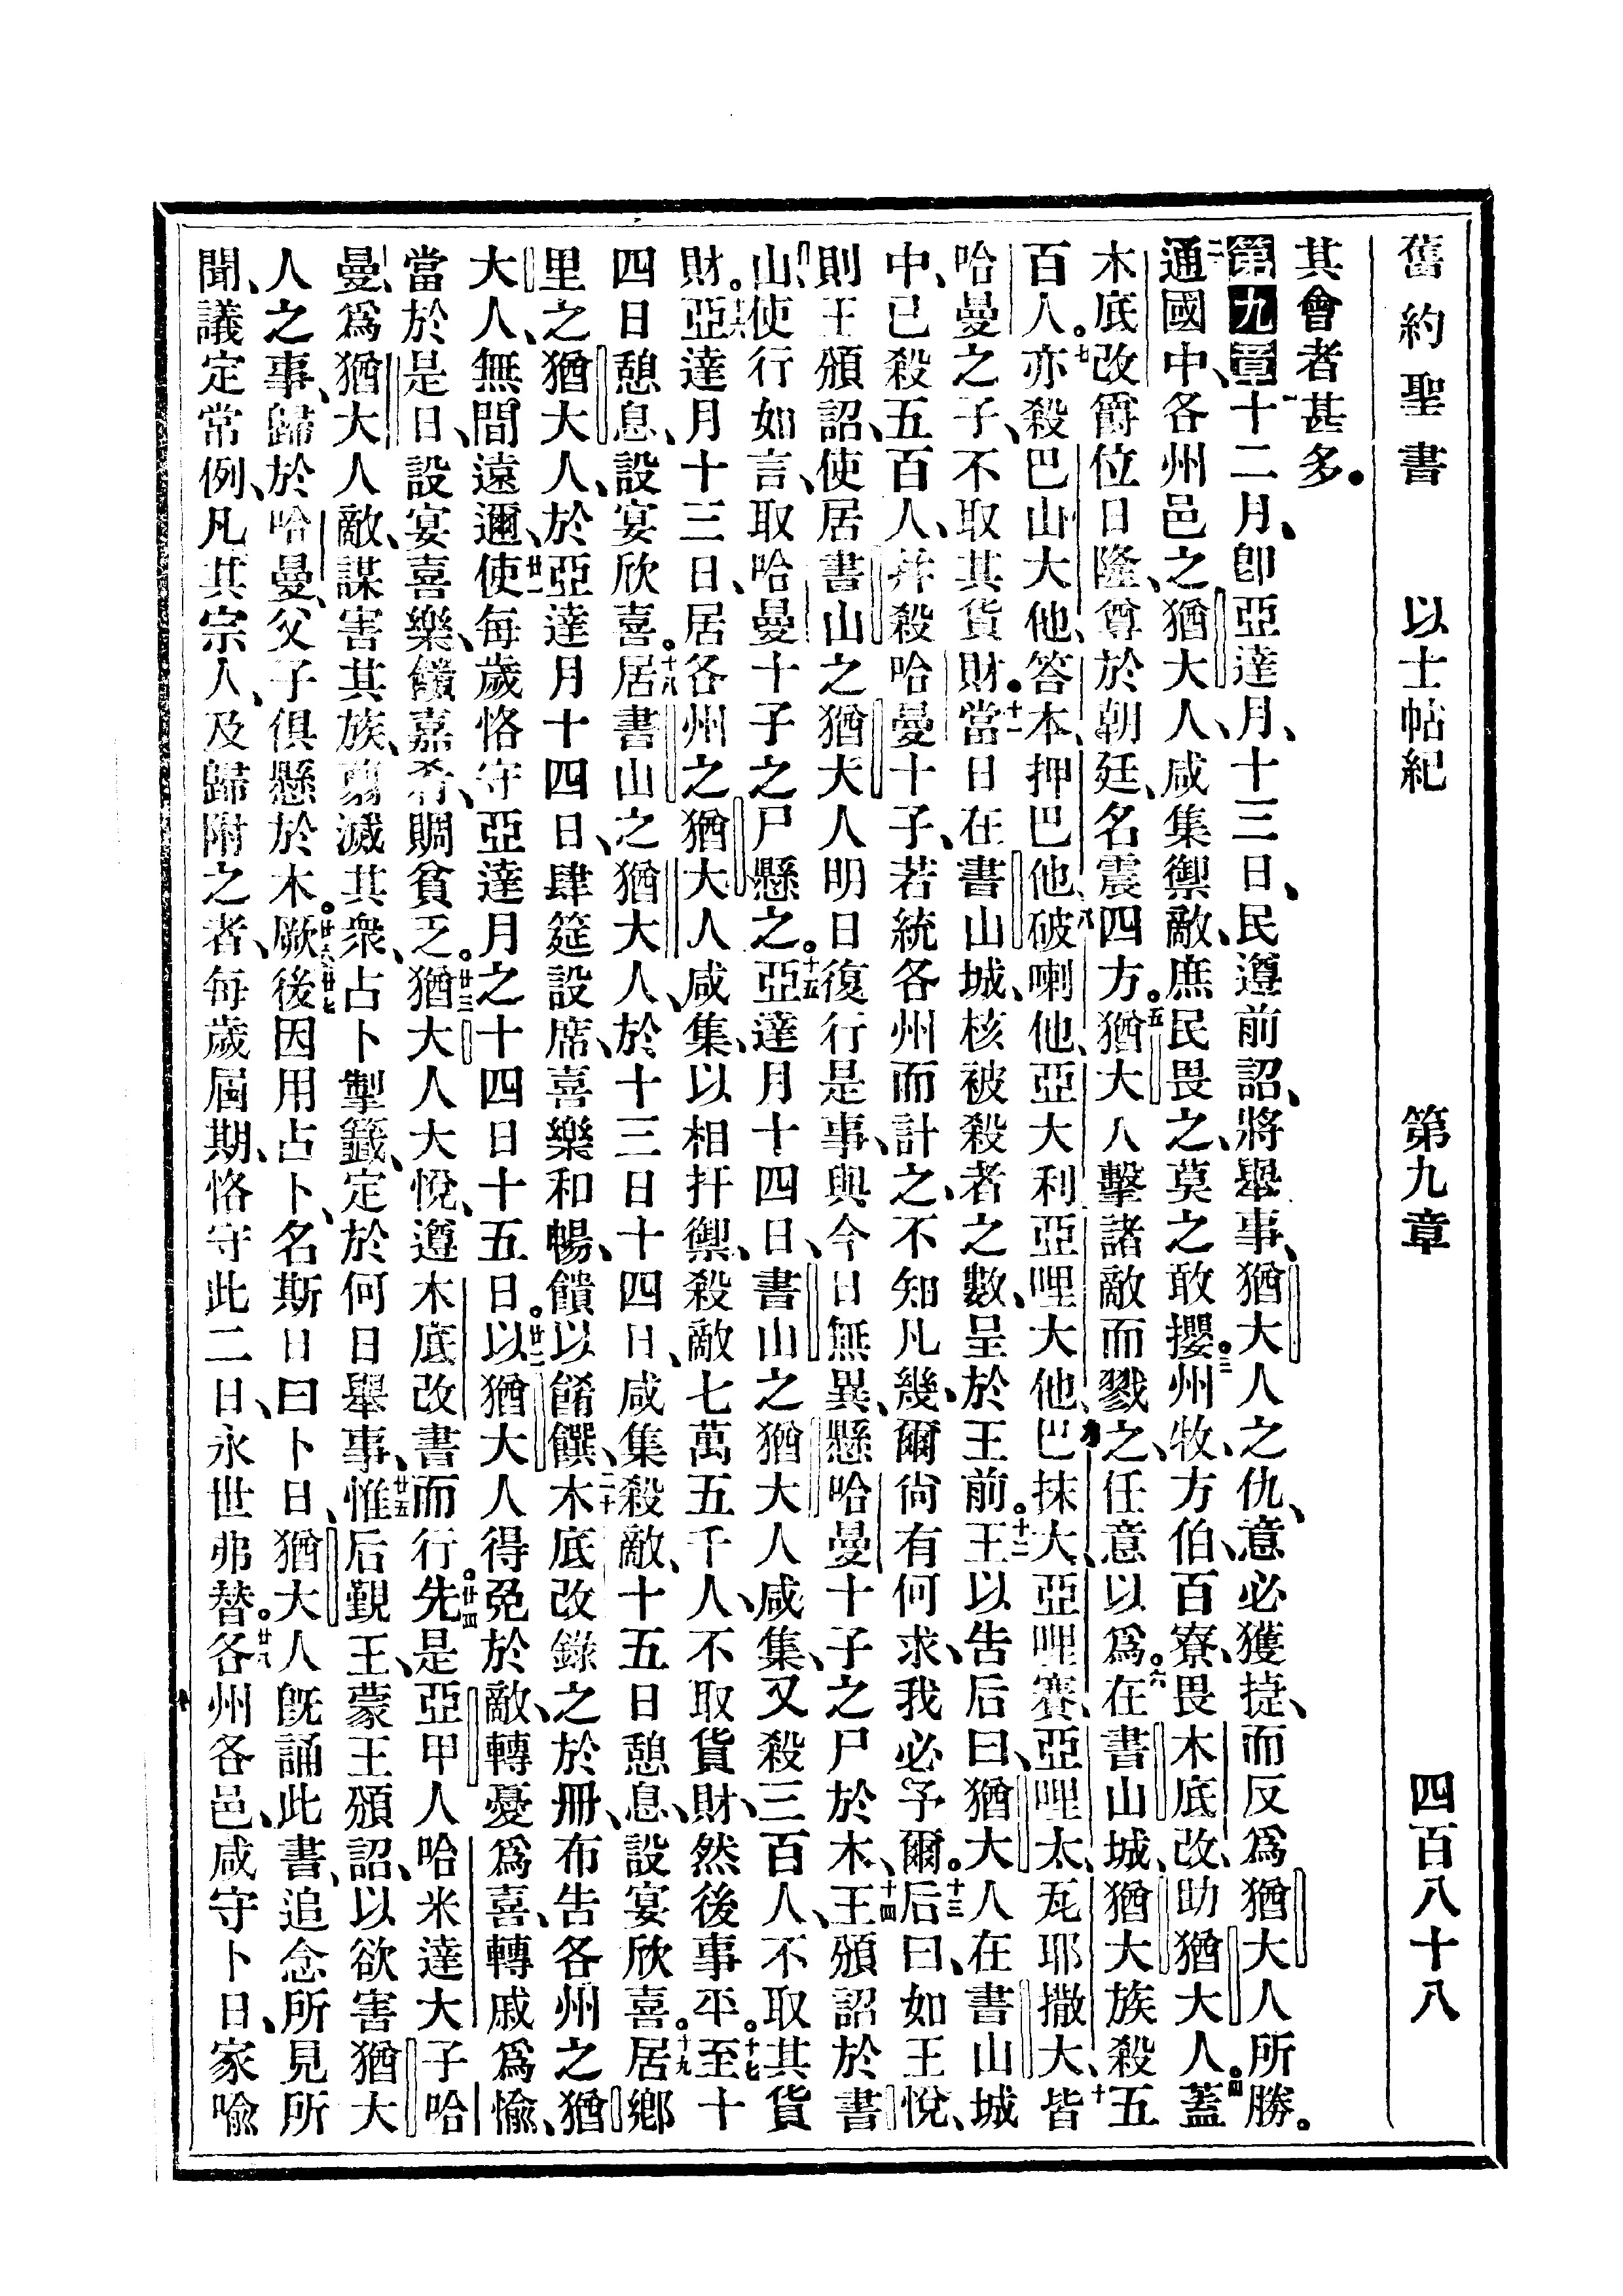 舊約聖書 以士帖紀 第九章 四百八十八
其會者甚多。
第九章一十二月、卽亞達月、十三日、民遵前詔、將舉事、猶大人之仇、意必獲捷、而反爲猶大人所勝。
二通國中、各州邑之猶大人、咸集禦敵、庶民畏之、莫之敢攖。三州牧、方伯、百寮、畏木底改、助猶大人。四蓋
木底改爵位日隆、尊於朝廷、名震四方。五猶大人擊諸敵而戮之、任意以爲。六在書山城、猶大族殺五
百人。七亦殺巴山大他、答本、押巴他、八破喇他、亞大利亞哩大他、九巴抹大、亞哩賽、亞哩太、瓦耶撒大、十皆
哈曼之子、不取其貨財。十一當日在書山城、核被殺者之數、呈於王前。十二王以告后曰、猶大人在書山城
中、已殺五百人、并殺哈曼十子、若統各州而計之、不知凡幾、爾尙有何求、我必予爾。十三后曰、如王悅、
則王頒詔、使居書山之猶大人明日復行是事、與今日無異、懸哈曼十子之尸於木、十四王頒詔於書
山、使行如言、取哈曼十子之尸懸之。十五亞達月十四日、書山之猶大人咸集、又殺三百人、不取其貨
財。十六亞達月十三日、居各州之猶大人咸集、以相扞禦、殺敵七萬五千人、不取貨財、然後事平。十七至十
四日憩息、設宴欣喜。十八居書山之猶大人、於十三日十四日、咸集殺敵、十五日憩息、設宴欣喜。十九居鄉
里之猶大人、於亞達月十四日、肆筵設席、喜樂和暢、饋以餚饌、二十木底改錄之於册、布告各州之猶
大人、無間遠邇、廿一使每歲恪守亞達月之十四日十五日。廿二以猶大人得免於敵、轉憂爲喜、轉戚爲愉、
當於是日、設宴喜樂、饋嘉肴、賙貧乏。廿三猶大人大悅、遵木底改書而行。廿四先是亞甲人哈米達大子哈
曼、爲猶大人敵、謀害其族、翦滅其衆、占卜掣籤、定於何日舉事、廿五惟后覲王、蒙王頒詔、以欲害猶大
人之事、歸於哈曼、父子俱懸於木。廿六廿七厥後因用占卜、名斯日曰卜日、猶大人旣誦此書、追念所見所
聞、議定常例、凡其宗人、及歸附之者、每歲屆期、恪守此二日、永世弗替。廿八各州各邑、咸守卜日、家喩